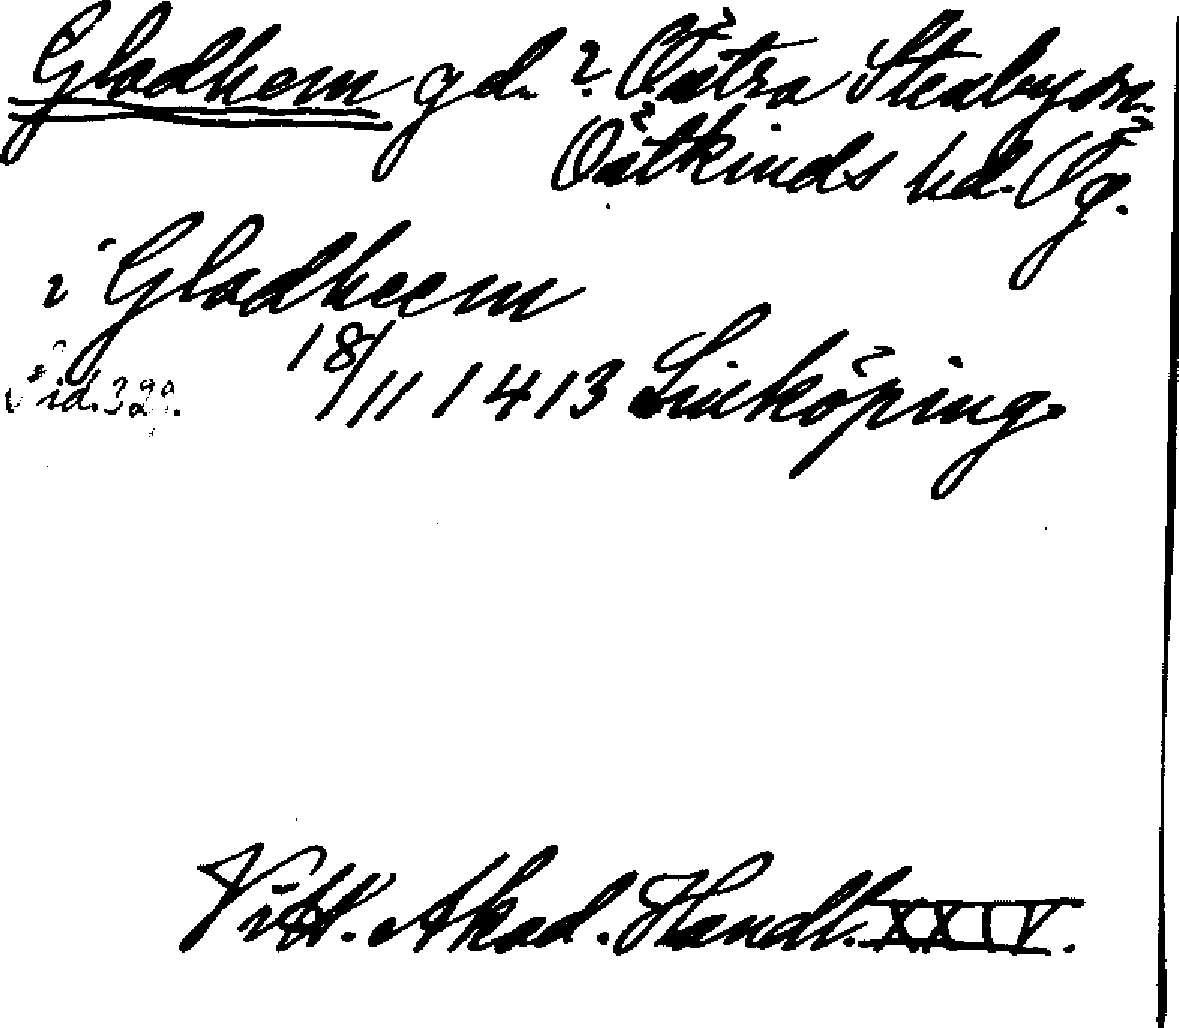 Gladhem gd. ? Östra Stenby sn.
Östkinds hd. Ög.
i Gladheem
Sid. 329. 18/11 1413 Linköping
Vitt. Akad. Handl. XXIV.